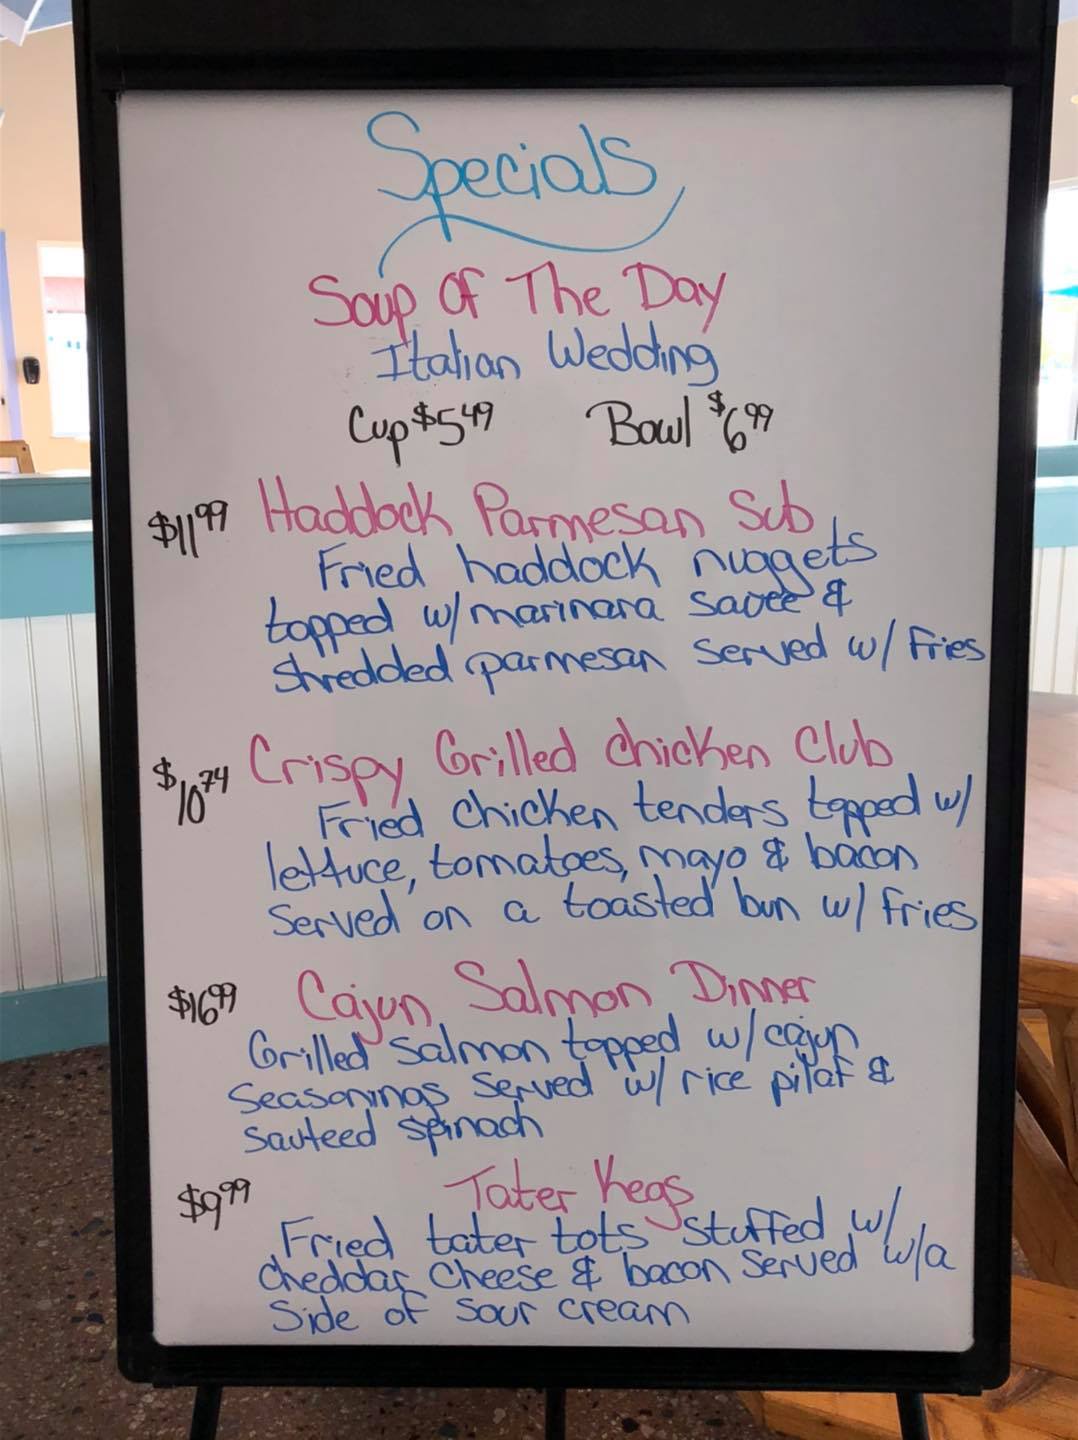 Specials
Soup Of The Day
Italian Wedding
Cup $5.49 Bowl $6.99
$11.99 Haddock Parmesan Sub
Fried haddock nuggets
topped w/ marinara sauce &
shredded parmesan served w/ fries
$10.74 Crispy Grilled Chicken Club
Fried chicken tenders topped w/
lettuce, tomatoes, mayo & bacon
served on a toasted bun w/ fries
$16.99 Cajun Salmon Dinner
Grilled salmon topped w/ cajun
seasonings served w/ rice pilaf &
sauteed spinach
$9.99 Tater Kegs
Fried tater tots stuffed w/
cheddar cheese & bacon served w/a
side of sour cream